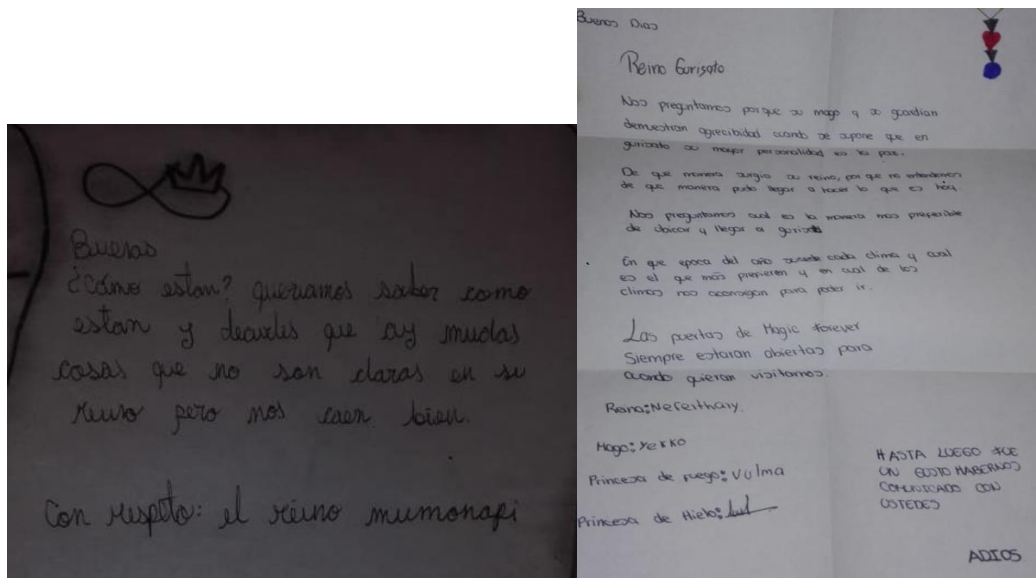 Buenas
¿Cómo estan? queriamos saber como
estan y decirles que ay muchas
cosas que no son claras en su
reino pero nos caen bien.
Con respeto: el reino mumonapi
Buenos Dias
Reino Gurisato
Nos preguntamos porque su mago y su guardian
demuestran agrecibidad cuando se supone que en
gurisato su mayor personalidad es la paz.
De que manera surgio su reino, por que no entendemos
de que manera pudo llegar a hacer lo que es hoy.
Nos preguntamos cual es la manera mas preferible
de ubicar y llegar a
En que epoca del año sucede cada clima y cual
es el que más prefieren y en cual de los
climas nos aconsegan para poder ir.
Las puertas de Magic forever
Siempre estaran abiertas para
cuando quieran visitarnos.
Reina: Neferthary.
Mago: Yekko
Princesa de fuego: Vulma
Princesa de Hielo:
HASTA LUEGO FUE
UN GUSTO HABERNOS
COMUNICADO CON
USTEDES
ADIOS